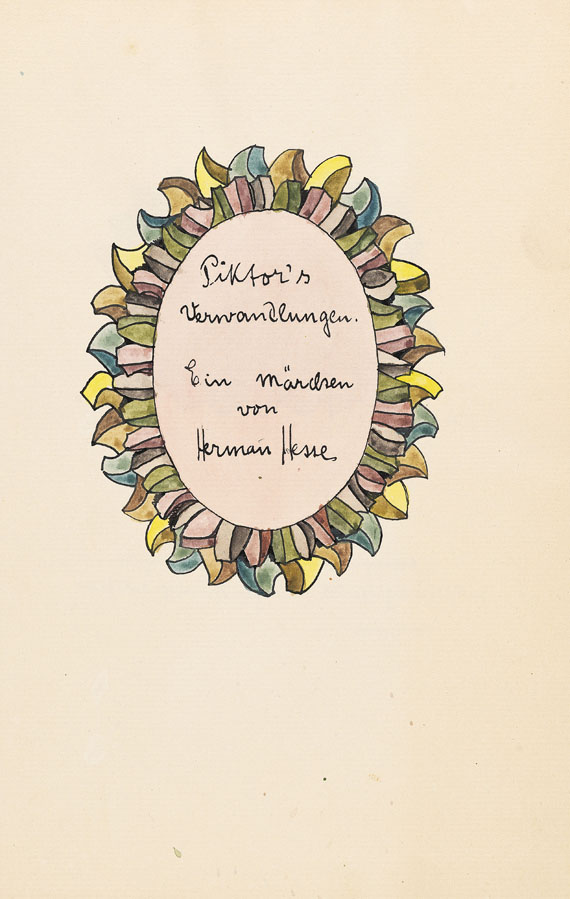 Piktor's
Verwandlungen.
Ein Märchen
von
Herman Hesse